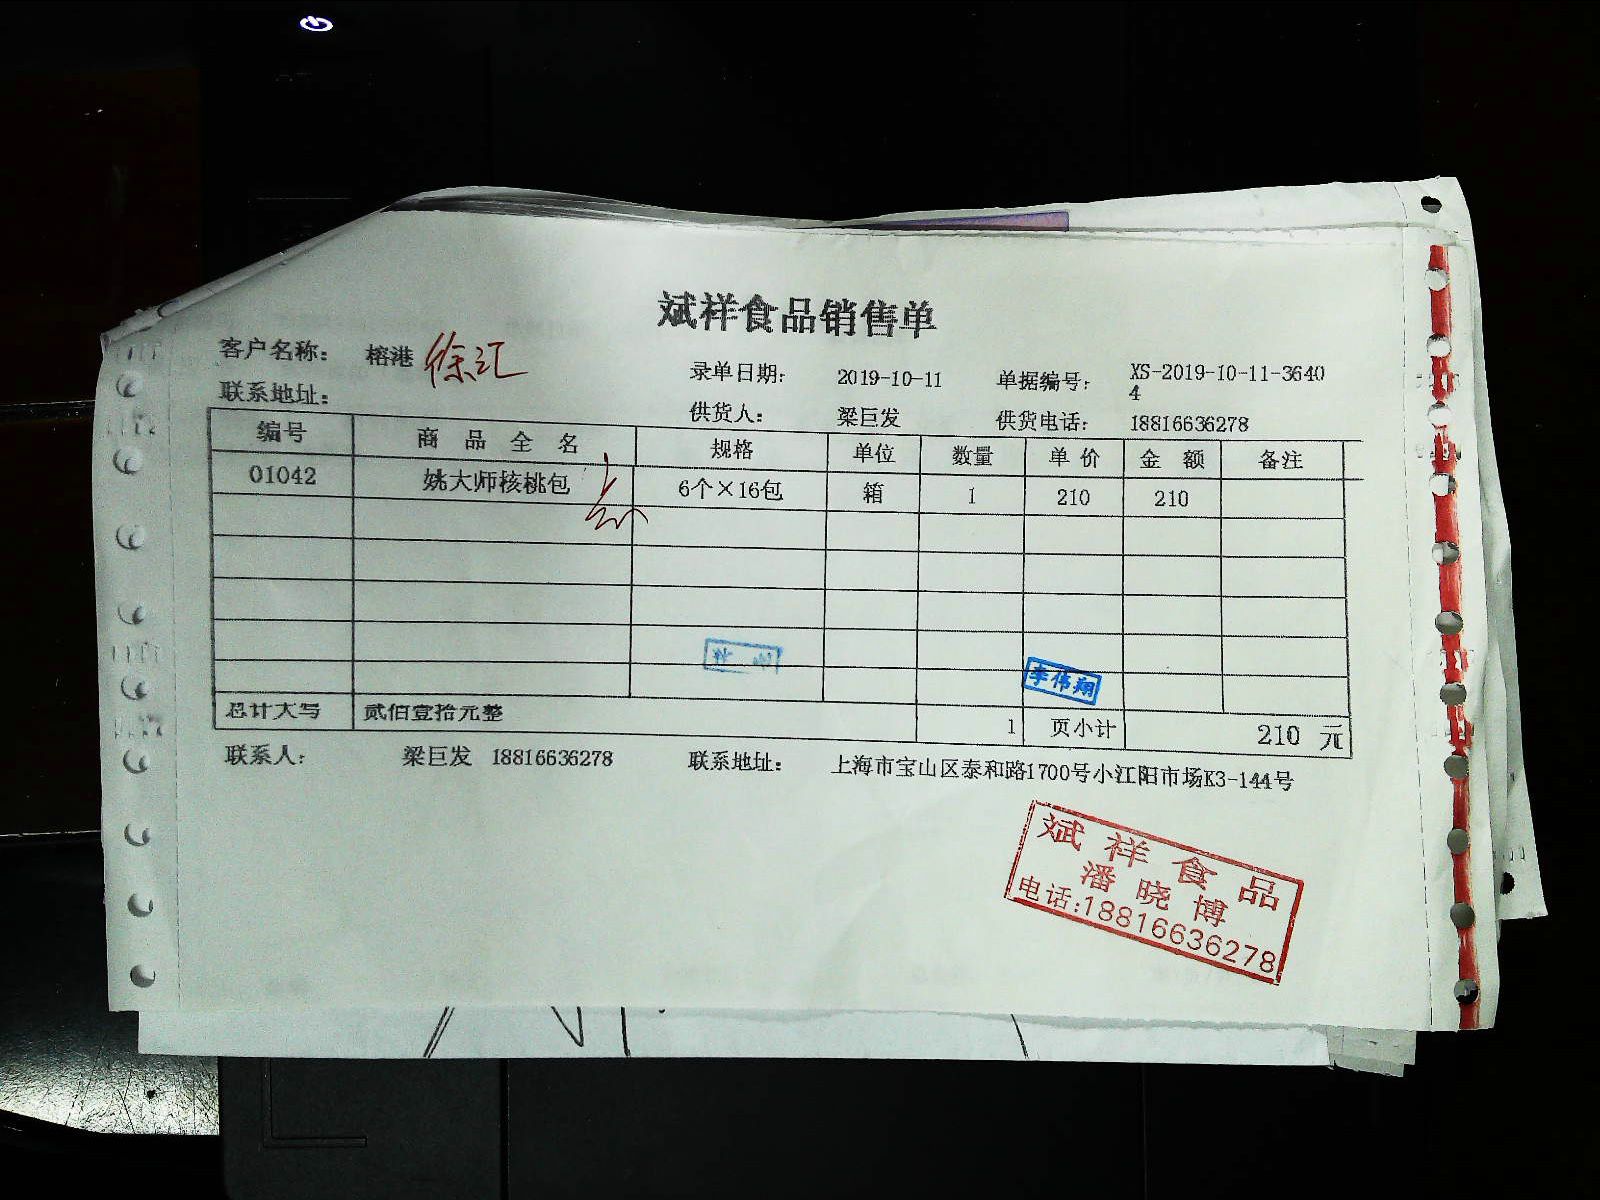 斌祥食品销售单
客户名称： 榕港 徐汇
录单日期： 2019-10-11 单据编号： XS-2019-10-11-36404
联系地址：
供货人： 梁巨发 供货电话： 18816636278
编号 商品全名 规格 单位 数量 单价 金额 备注
01042 姚大师核桃包 6个×16包 箱 1 210 210
李伟翔
总计大写 贰佰壹拾元整 1 页小计 210 元
联系人： 梁巨发 18816636278 联系地址： 上海市宝山区泰和路1700号小江阳市场K3-144号
斌祥食品
潘晓博
电话:18816636278